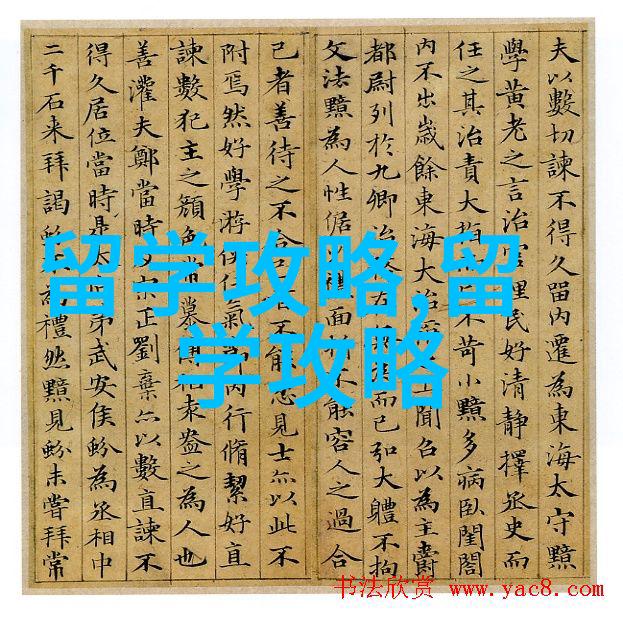 夫以數切諫不得久留內遷為東海太守黯
學黃老之言治官理民好清静擇丞史而
任之其治責大指不苛小黯多病臥閨閤
內不出歲餘東海大治聞召以為主爵
都尉列於九卿治而已弘大體不拘
文法黯為人性倨禮面不能容人之過合
己者善待之不合不能忍見士亦以此不
附焉然好學游俠任氣內行脩絜好直
諫數犯主之顏色常慕傅柏袁盎之為人也
善灌夫鄭當時及宗正劉棄亦以數直諫不
得久居位當時是太弟武安侯蚡為丞相中
二千石来拜謁蚡為禮然黯見蚡未嘗拜常
留学攻略,留
学攻略
书法欣赏 www.yac8.com